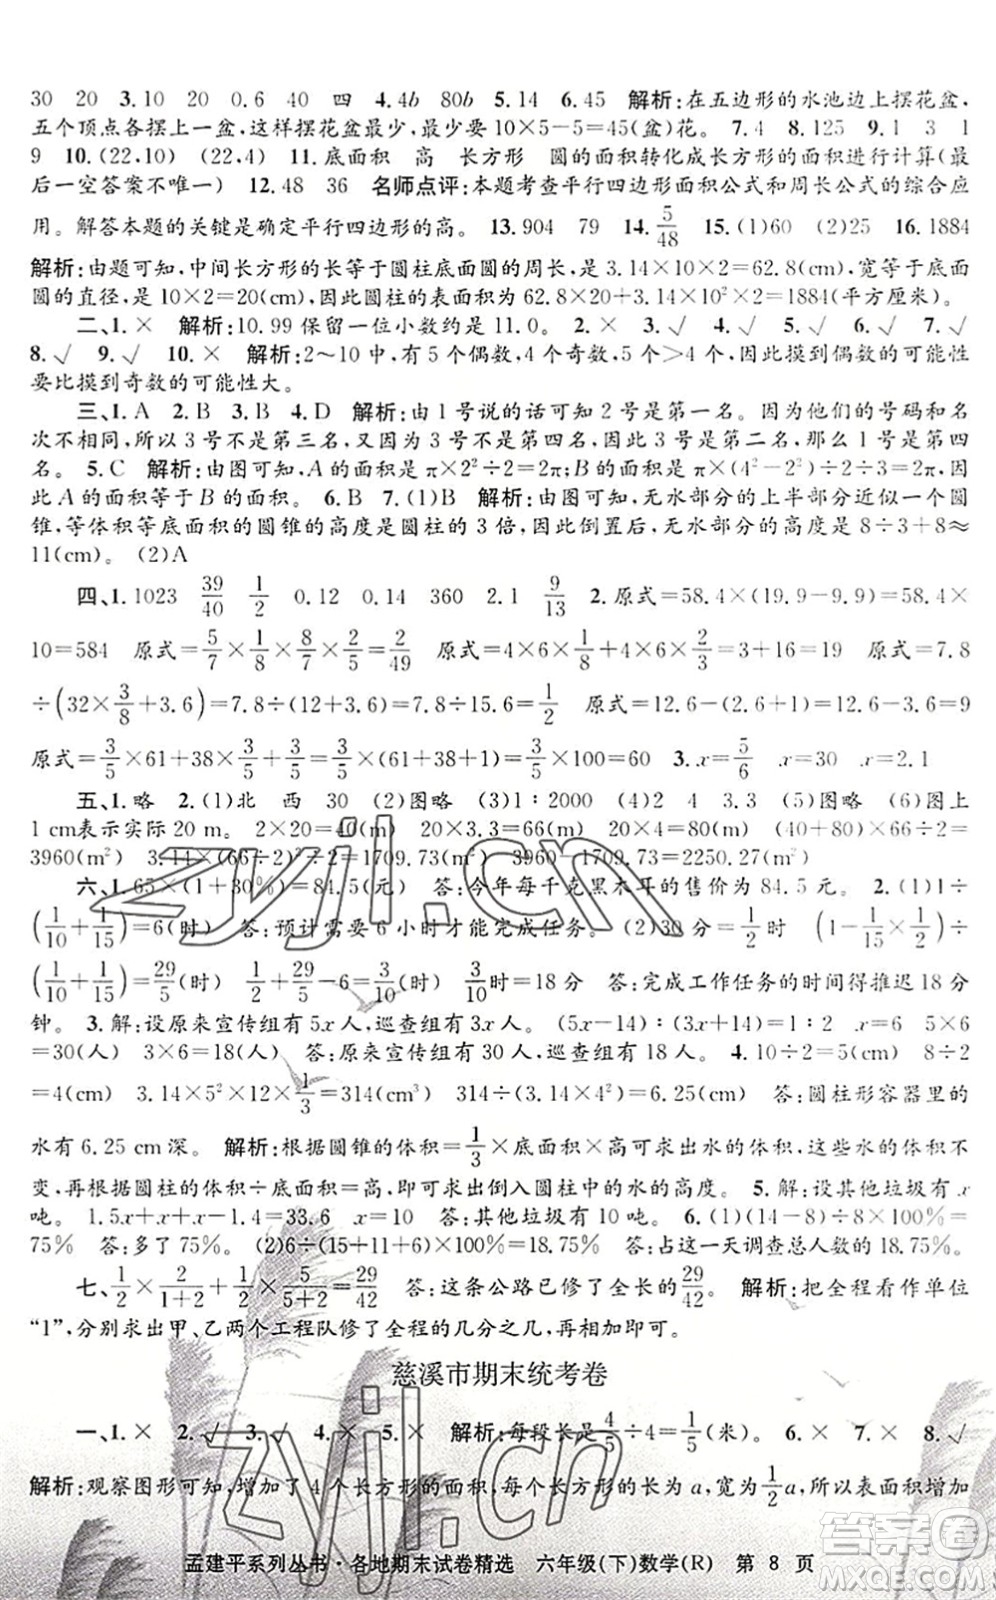 30 20 3.10 20 0.6 40 四 4.4b 80b 5.14 6.45 解析:在五边形的水池边上摆花盆,
五个顶点各摆上一盆,这样摆花盆最少,最少要10×5-5=45(盆)花。 7.4 8.125 9.1 3 1
9 10.(22,10) (22,4) 11.底面积 高 长方形 圆的面积转化成长方形的面积进行计算(最
后一空答案不唯一) 12.48 36 名师点评:本题考查平行四边形面积公式和周长公式的综合应
用。解答本题的关键是确定平行四边形的高。 13.904 79 14.5/48 15.(1)60 (2)25 16.1884
解析:由题可知,中间长方形的长等于圆柱底面圆的周长,是3.14×10×2=62.8(cm),宽等于底面
圆的直径,是10×2=20(cm),因此圆柱的表面积为62.8×20+3.14×10²×2=1884(平方厘米)。
二、1.× 解析:10.99保留一位小数约是11.0。 2.× 3.√ 4.× 5.√ 6.√ 7.√
8.√ 9.√ 10.× 解析:2~10中,有5个偶数,4个奇数,5个>4个,因此摸到偶数的可能性
要比摸到奇数的可能性大。
三、1.A 2.B 3.B 4.D 解析:由1号说的话可知2号是第一名。因为他们的号码和名
次不相同,所以3号不是第三名,又因为3号不是第四名,因此3号是第二名,那么1号是第四
名。 5.C 解析:由图可知,A的面积是π×2²÷2=2π;B的面积是π×(4²-2²)÷2÷3=2π,因
此A的面积等于B的面积。 6.B 7.(1)B 解析:由图可知,无水部分的上半部分近似一个圆
锥,等体积等底面积的圆锥的高度是圆柱的3倍,因此倒置后,无水部分的高度是8÷3+8≈
11(cm)。 (2)A
四、1.1023 39/40 1/2 0.12 0.14 360 2.1 9/13 2.原式=58.4×(19.9-9.9)=58.4×
10=584 原式=5/7×1/8×8/7×2/5=2/49 原式=4×6×1/8+4×6×2/3=3+16=19 原式=7.8
÷(32×3/8+3.6)=7.8÷(12+3.6)=7.8÷15.6=1/2 原式=12.6-(2.6+1)=12.6-3.6=9
原式=3/5×61+38×3/5+3/5=3/5×(61+38+1)=3/5×100=60 3.x=5/6 x=30 x=2.1
五、1.略 2.(1)北 西 30 (2)图略 (3)1∶2000 (4)2 4 3.3 (5)图略 (6)图上
1 cm表示实际20 m。 2×20=40(m) 20×3.3=66(m) 20×4=80(m) (40+80)×66÷2=
3960(m²) 3.14×(66÷2)²÷2=1709.73(m²) 3960-1709.73=2250.27(m²)
六、1.65×(1+30%)=84.5(元) 答:今年每千克黑木耳的售价为84.5元。 2.(1)1÷
(1/10+1/15)=6(时) 答:预计需要6小时才能完成任务。 (2)30分=1/2时 (1-1/15×1/2)÷
(1/10+1/15)=29/5(时) 1/2+29/5-6=3/10(时) 3/10时=18分 答:完成工作任务的时间得推迟18分
钟。 3.解:设原来宣传组有5x人,巡查组有3x人。 (5x-14)∶(3x+14)=1∶2 x=6 5×6
=30(人) 3×6=18(人) 答:原来宣传组有30人,巡查组有18人。 4.10÷2=5(cm) 8÷2
=4(cm) 3.14×5²×12×1/3=314(cm³) 314÷(3.14×4²)=6.25(cm) 答:圆柱形容器里的
水有6.25 cm深。 解析:根据圆锥的体积=1/3×底面积×高可求出水的体积,这些水的体积不
变,再根据圆柱的体积÷底面积=高,即可求出倒入圆柱中的水的高度。 5.解:设其他垃圾有x
吨。 1.5x+x+x-1.4=33.6 x=10 答:其他垃圾有10吨。 6.(1)(14-8)÷8×100%=
75% 答:多了75%。 (2)6÷(15+11+6)×100%=18.75% 答:占这一天调查总人数的18.75%。
七、1/2×2/(1+2)+1/2×5/(5+2)=29/42 答:这条公路已修了全长的29/42。 解析:把全程看作单位
“1”,分别求出甲、乙两个工程队修了全程的几分之几,再相加即可。
慈溪市期末统考卷
一、1.× 2.√ 3.√ 4.× 5.× 解析:每段长是4/5÷4=1/5(米)。 6.× 7.× 8.√
解析:观察图形可知,增加了4个长方形的面积,每个长方形的长为a,宽为1/2a,所以表面积增加
孟建平系列丛书·各地期末试卷精选 六年级(下)数学(R) 第 8 页
zyjl.cn
zyjl.cn
答案圈
MXQE.COM